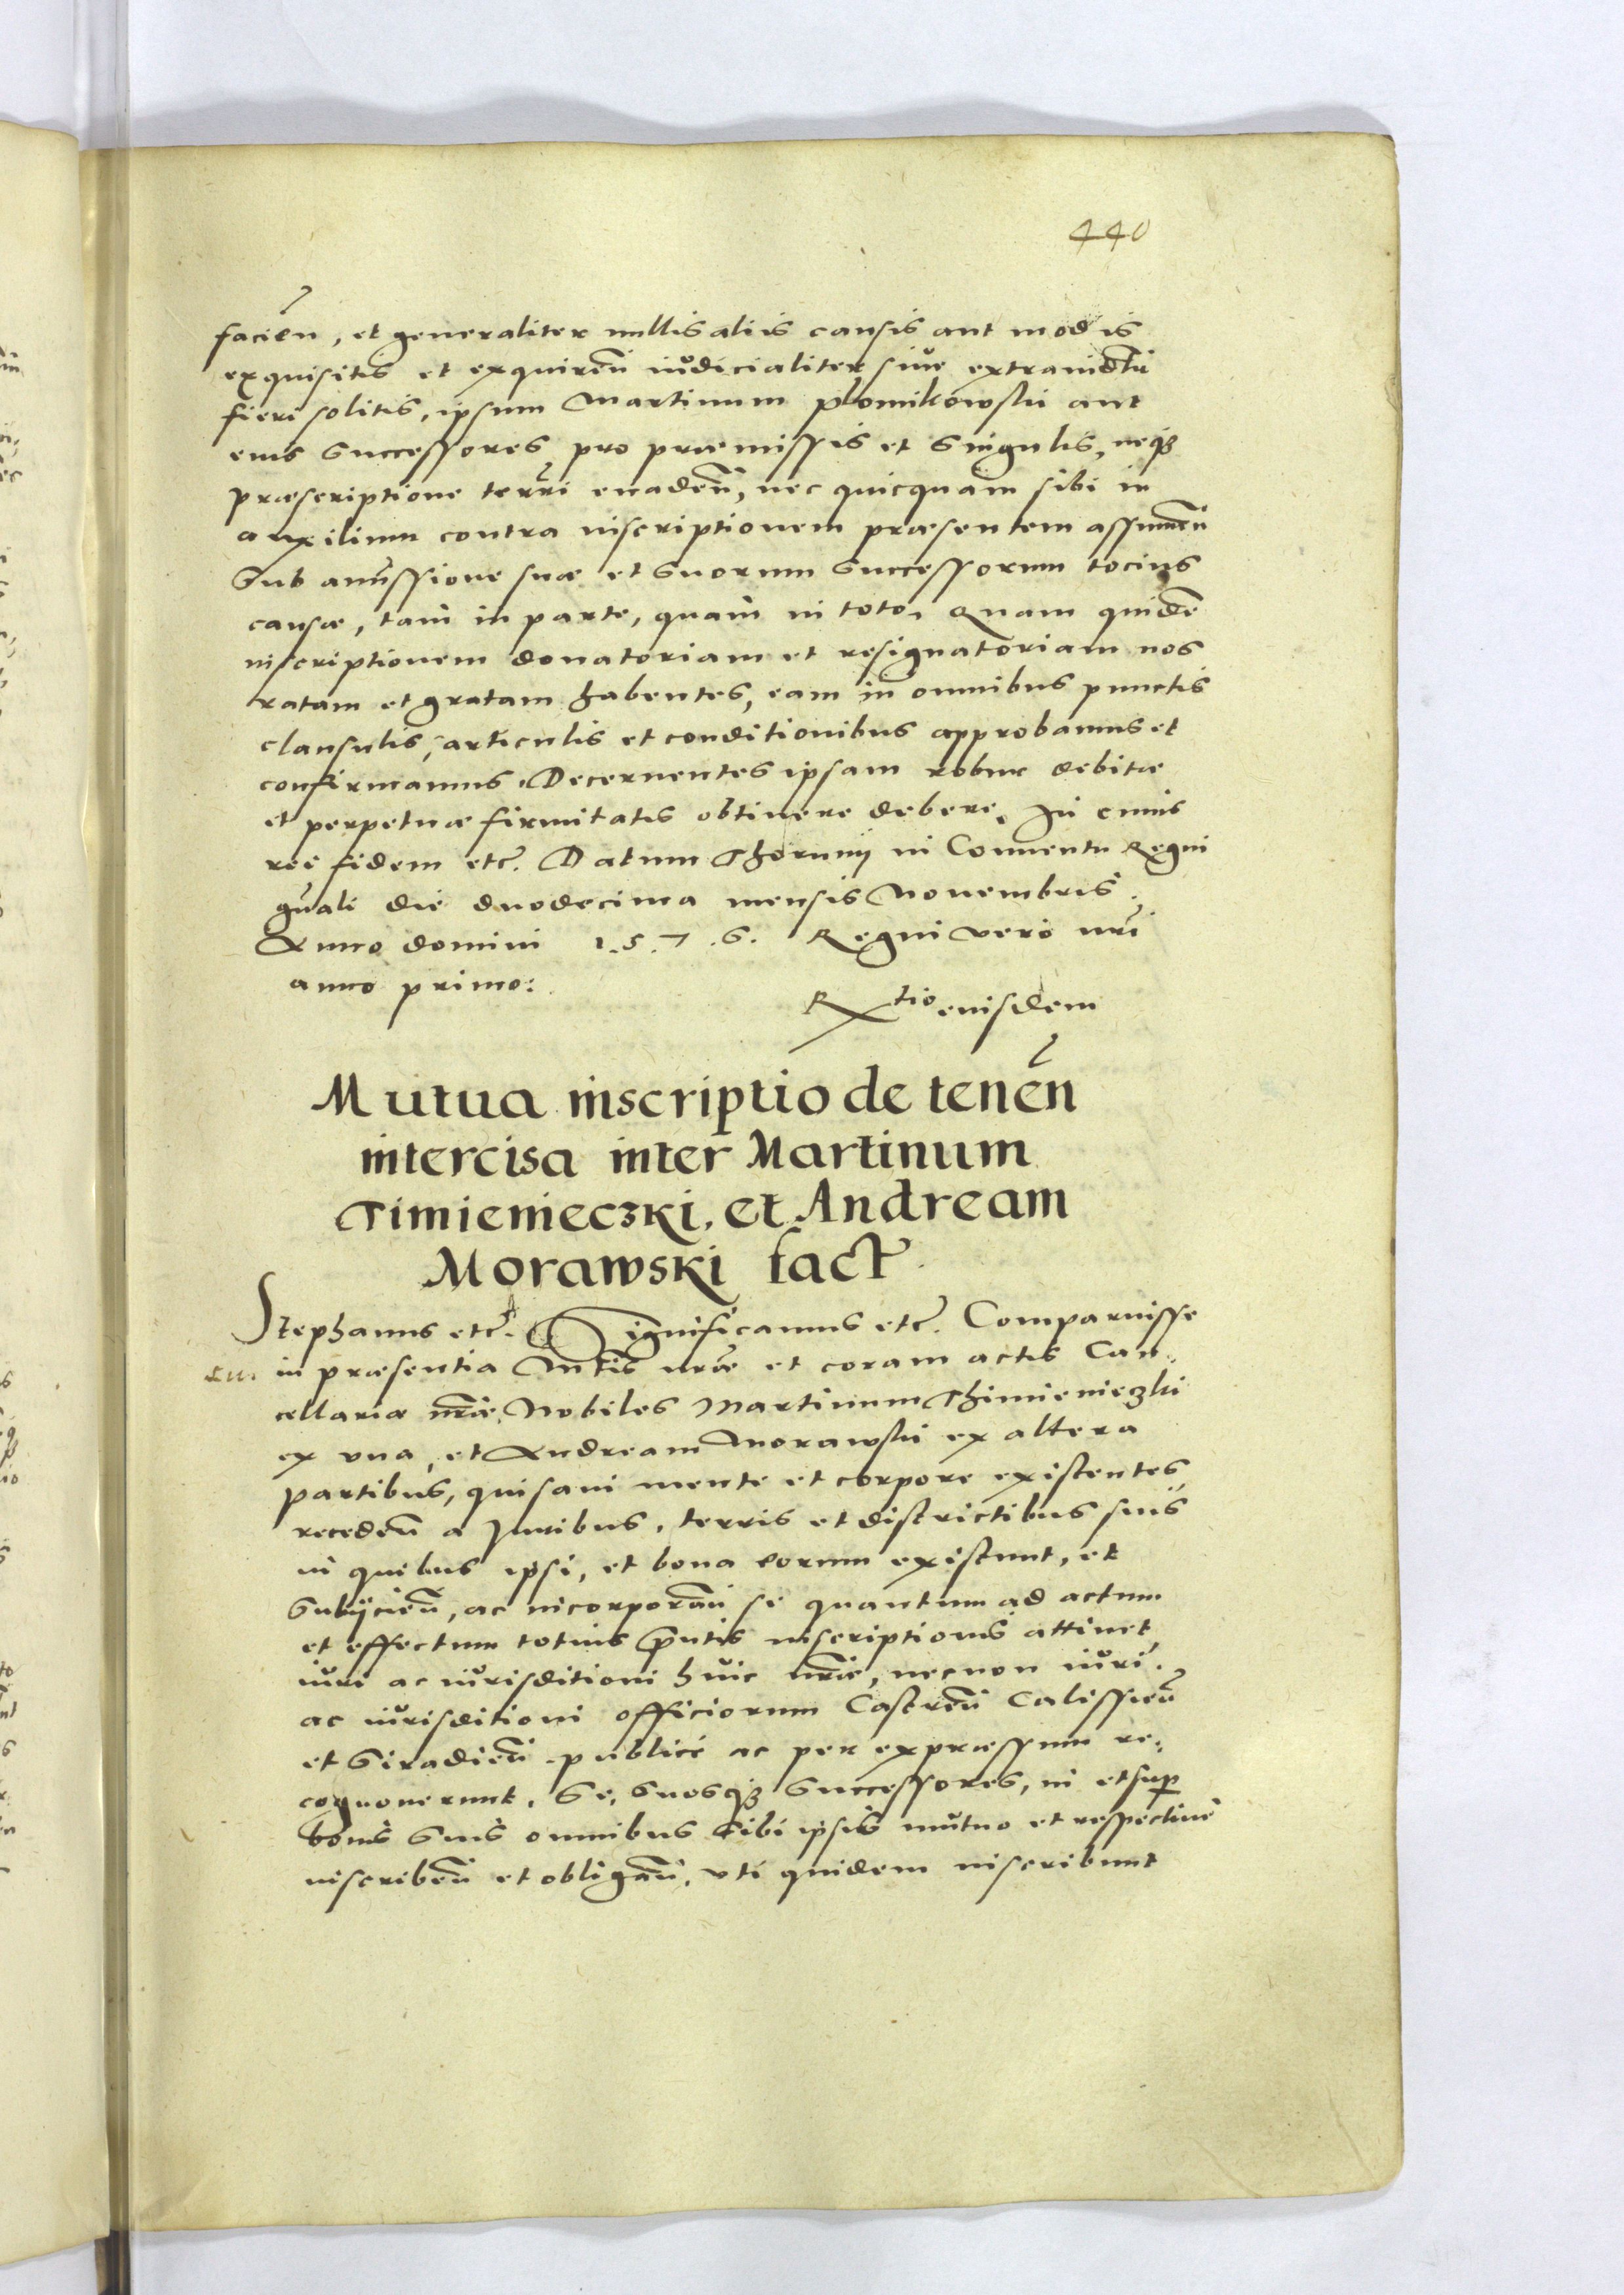 440
facien̄, et generaliter nullis aliis causis aut modis
exquisitis et exquiren̄ iudicialiter siue extraiudltr
fieri solitis, ipsum Martinum Plomikowski aut
eius Successores pro præmissis et Singulis, neqȝ
præscriptione terrr̄i euaden̄, nec quicquam sibi in
auxilium contra inscriptionem præsentem assumen̄
Sub amissione suæ et Suorum Successorum tocius
causæ, tam in parte, quam in toto, Quam quidē
inscriptionem donatoriam et resignatoriam nos
ratam et gratam habentes, eam in omnibus punctis
clausulis, articulis et conditionibus approbamus et
confirmamus. Decernentes ipsam robur debitæ
et perpetuæ firmitatis obtinere debere. In cuius
rei fidem etc. Datum Thorunij in Conuentu Regni
gn̄ali die duodecima mensis Nouembris.
Anno domini 1.5.7.6. Regni vero nr̄i
anno primo:
Rtio eiusdem
Mutua inscriptio de tenen̄
intercisa inter Martinum
Timienieczki, et Andream
Morawski fact
Stephanus etc. Significamus etc. Comparuisse
in præsentia Mtis nr̄æ et coram actis Can,
cellariæ nr̄æ, Nobiles Martinum Thimienieczki
ex vna, et Andream Morawski ex altera
partibus, qui sani mente et corpore existentes
receden̄ a Iuribus, terris et districtibus suis
in quibus ipsi, et bona eorum existunt, et
Subijcien̄, ac incorporan̄ se quantum ad actum
et effectum totius p̄ntis inscriptionis attinet
iuri ac iurisditioni huic nr̄æ, necnon iuri.
ac iurisditioni officiorum Castren̄ Calissien̄
et Siradien̄ publicé ac per expræssum re,
cognouerunt, Se, Suosqȝ Successores, in et sup
bonis Suis omnibus Sibi ipsis mutuo et respectiué
inscriben̄ et obligan̄, vti quidem inscribunt